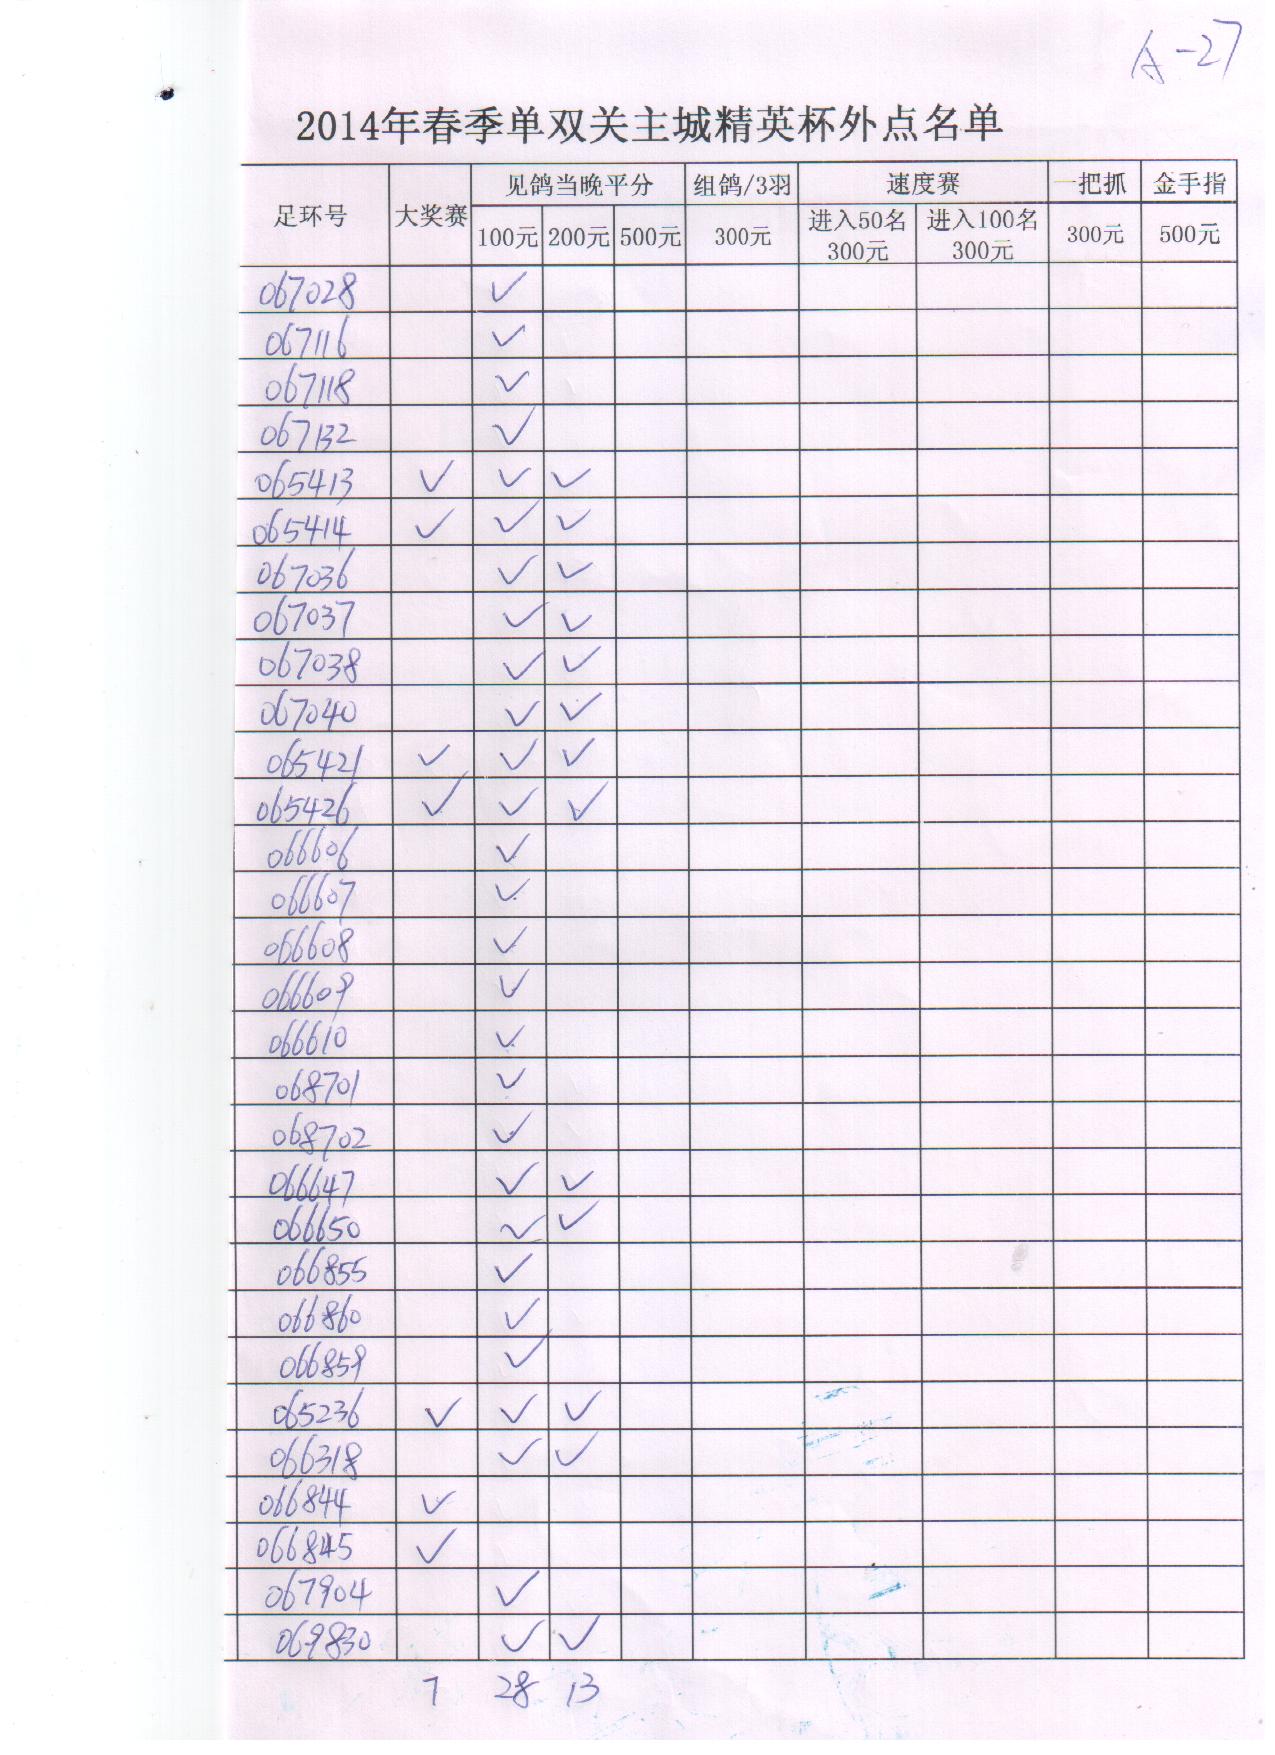 A-27
2014年春季单双关主城精英杯外点名单
足环号 大奖赛 见鸽当晚平分 组鸽/3羽 速度赛 一把抓 金手指
100元 200元 500元 300元 进入50名 300元 进入100名 300元 300元 500元
067028 ✓
067116 ✓
067118 ✓
067132 ✓
065413 ✓ ✓ ✓
065414 ✓ ✓ ✓
067036 ✓ ✓
067037 ✓ ✓
067038 ✓ ✓
067040 ✓ ✓
065421 ✓ ✓ ✓
065426 ✓ ✓ ✓
066606 ✓
066607 ✓
066608 ✓
066609 ✓
066610 ✓
068701 ✓
068702 ✓
066647 ✓ ✓
066650 ✓ ✓
066855 ✓
066860 ✓
066859 ✓
065236 ✓ ✓ ✓
066318 ✓ ✓
066844 ✓
066845 ✓
067904 ✓
069830 ✓ ✓
7 28 13